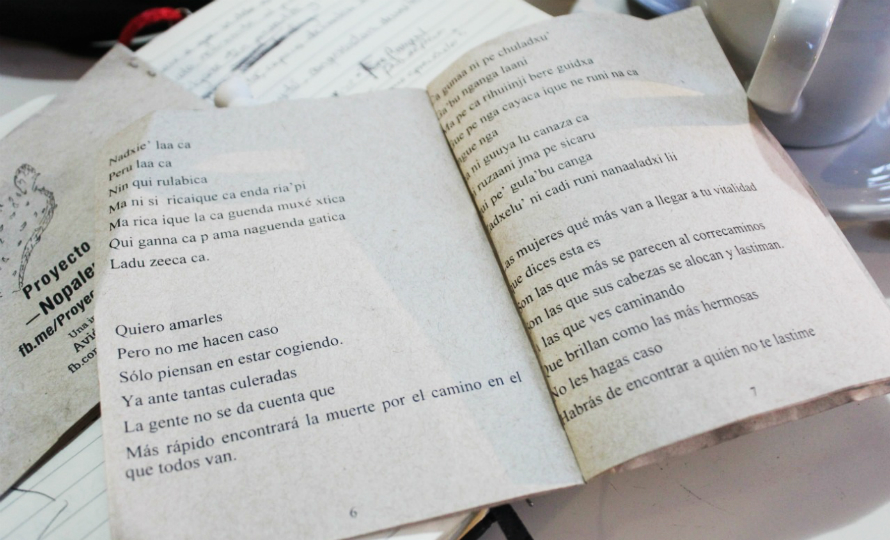 Nadxie' laa ca
Peru laa ca
Nin qui rulabica
Ma ni si ricaique ca enda ria'pi
Ma rica ique la ca guenda muxé xtica
Qui ganna ca p ama naguenda gatica
Ladu zeeca ca.
Quiero amarles
Pero no me hacen caso
Sólo piensan en estar cogiendo.
Ya ante tantas culeradas
La gente no se da cuenta que
Más rápido encontrará la muerte por el camino en el
que todos van.
6
gunaa ni pe chuladxu'
nganga laani
pe ca rihuiinji bere guidxa
pe nga cayaca ique ne runi na ca
nga
ni guuya lu canaza ca
ruzaani jma pe sicaru
pe' gula'bu canga
ni cadi runi nanaaladxi lii
as mujeres qué más van a llegar a tu vitalidad
que dices esta es
on las que más se parecen al correcaminos
on las que sus cabezas se alocan y lastiman.
las que ves caminando
que brillan como las más hermosas
No les hagas caso
Habrás de encontrar a quién no te lastime
7
Proyecto
—Nopale
fb.me/Proye
Una i
Avi
fb.co